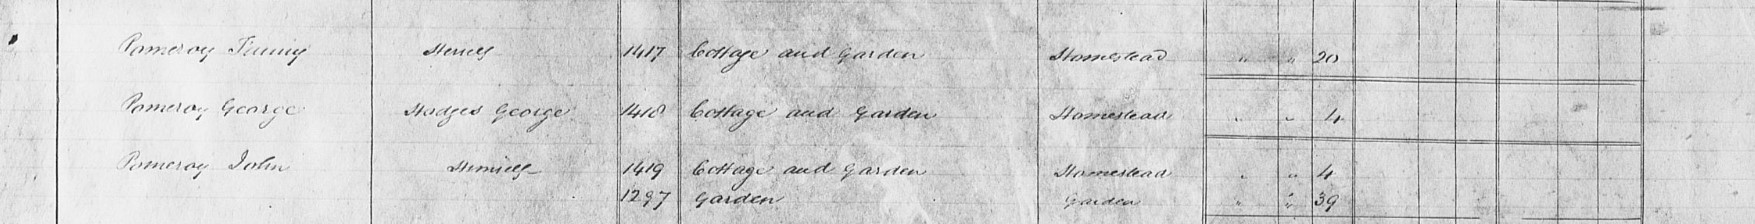 Pomeroy Himself 1417 Cottage and Garden Homestead " " 20
Pomeroy George Hodges George 1418 Cottage and Garden Homestead " " 4
Pomeroy John Himself 1419 Cottage and Garden Homestead " " 4
1297 Garden Garden " " 39